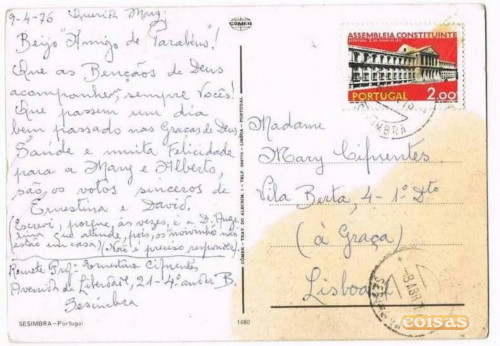 9-4-76 Querida Mary
Beijo "Amigo de Parabens!
Que as Bençãos de Deus
acompanhem, sempre Vocês!
Que passem um dia
bem passado nas Graças de Deus
Saúde e muita Felicidade
para a Mary e Alberto,
são, os votos sinceros de
Ernestina e David.
(Escrevi, porque, às vezes, é a D.
que atende, pois, os
estão em casa) (Não é preciso responder)
Remete Profª Ernestina Cifuentes
Avenida da Liberdade, 21-4º andar B.
Sesimbra
SESIMBRA—Portugal
1480
CÔMER
CÔMER - TRAV. DO ALECRIM, 1 - TELF. - LISBOA - PORTUGAL
ASSEMBLEIA CONSTITUINTE
PORTUGAL 2.00
SESIMBRA
Madame
Mary Cifuentes
Vila Berta, 4-1º Dtº
(à Graça)
Lisboa
-8 ABR.7
coisas